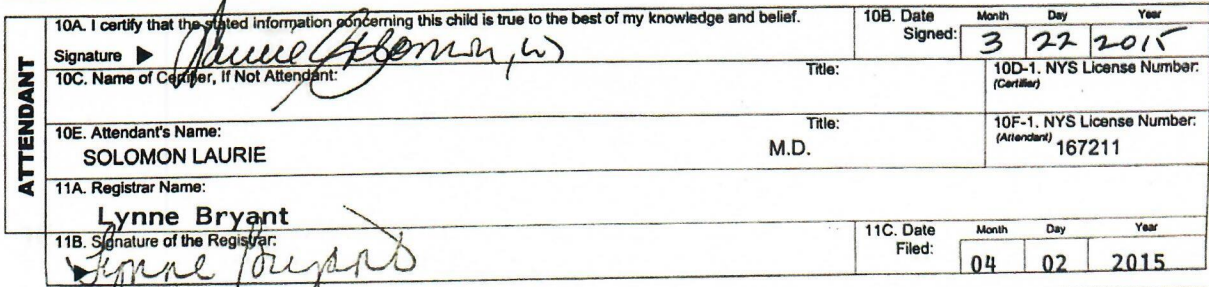 10A. I certify that the stated information concerning this child is true to the best of my knowledge and belief.
Signature ▶ Laurie Solomon, MD
10B. Date Signed: Month Day Year
3 22 2015
ATTENDANT
10C. Name of Certifier, If Not Attendant: Title: 10D-1. NYS License Number:
(Certifier)
10E. Attendant's Name: Title: 10F-1. NYS License Number:
SOLOMON LAURIE M.D. (Attendant) 167211
11A. Registrar Name:
Lynne Bryant
11B. Signature of the Registrar:
▶ Lynne Bryant
11C. Date Filed: Month Day Year
04 02 2015